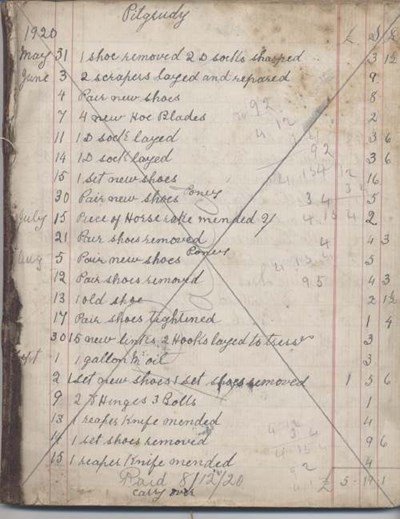 Pitgrudy
1920 £ S d
May 31 1 shoe removed 2 D socks sharped 3 1½
June 3 2 scrapers layed and repared 9
4 Pair new shoes 8
7 4 new Hoe Blades 2
11 1 D sock layed 3 6
14 1 D sock layed 3 6
15 1 set new shoes 16
30 Pair new shoes Poney 5
July 15 Piece of Horse rake mended 2
21 Pair shoes removed 4 3
Aug 5 Pair new shoes Poney 5
12 Pair shoes removed 4 3
13 1 old shoe 2 1½
17 Pair shoes tightined 1 4
30 6 new links 2 Hooks layed to 3
Sept 1 1 gallon oil 3
2 1 set new shoes 1 set shoes removed 1 5 6
9 2 Hinges 3 Bolts 1
13 1 reaper Knife mended 4
14 1 set shoes removed 9 6
15 1 reaper Knife mended 4
Paid 8/12/20 £ 5 1
carry over